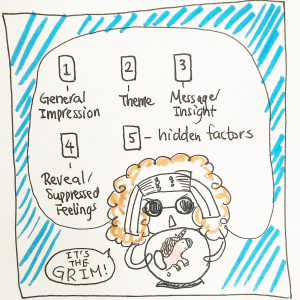 1
2
3
General
Impression
Theme
Message/
Insight
4
5 - hidden factors
Reveal/
Suppressed
Feelings
IT'S
THE
GRIM!